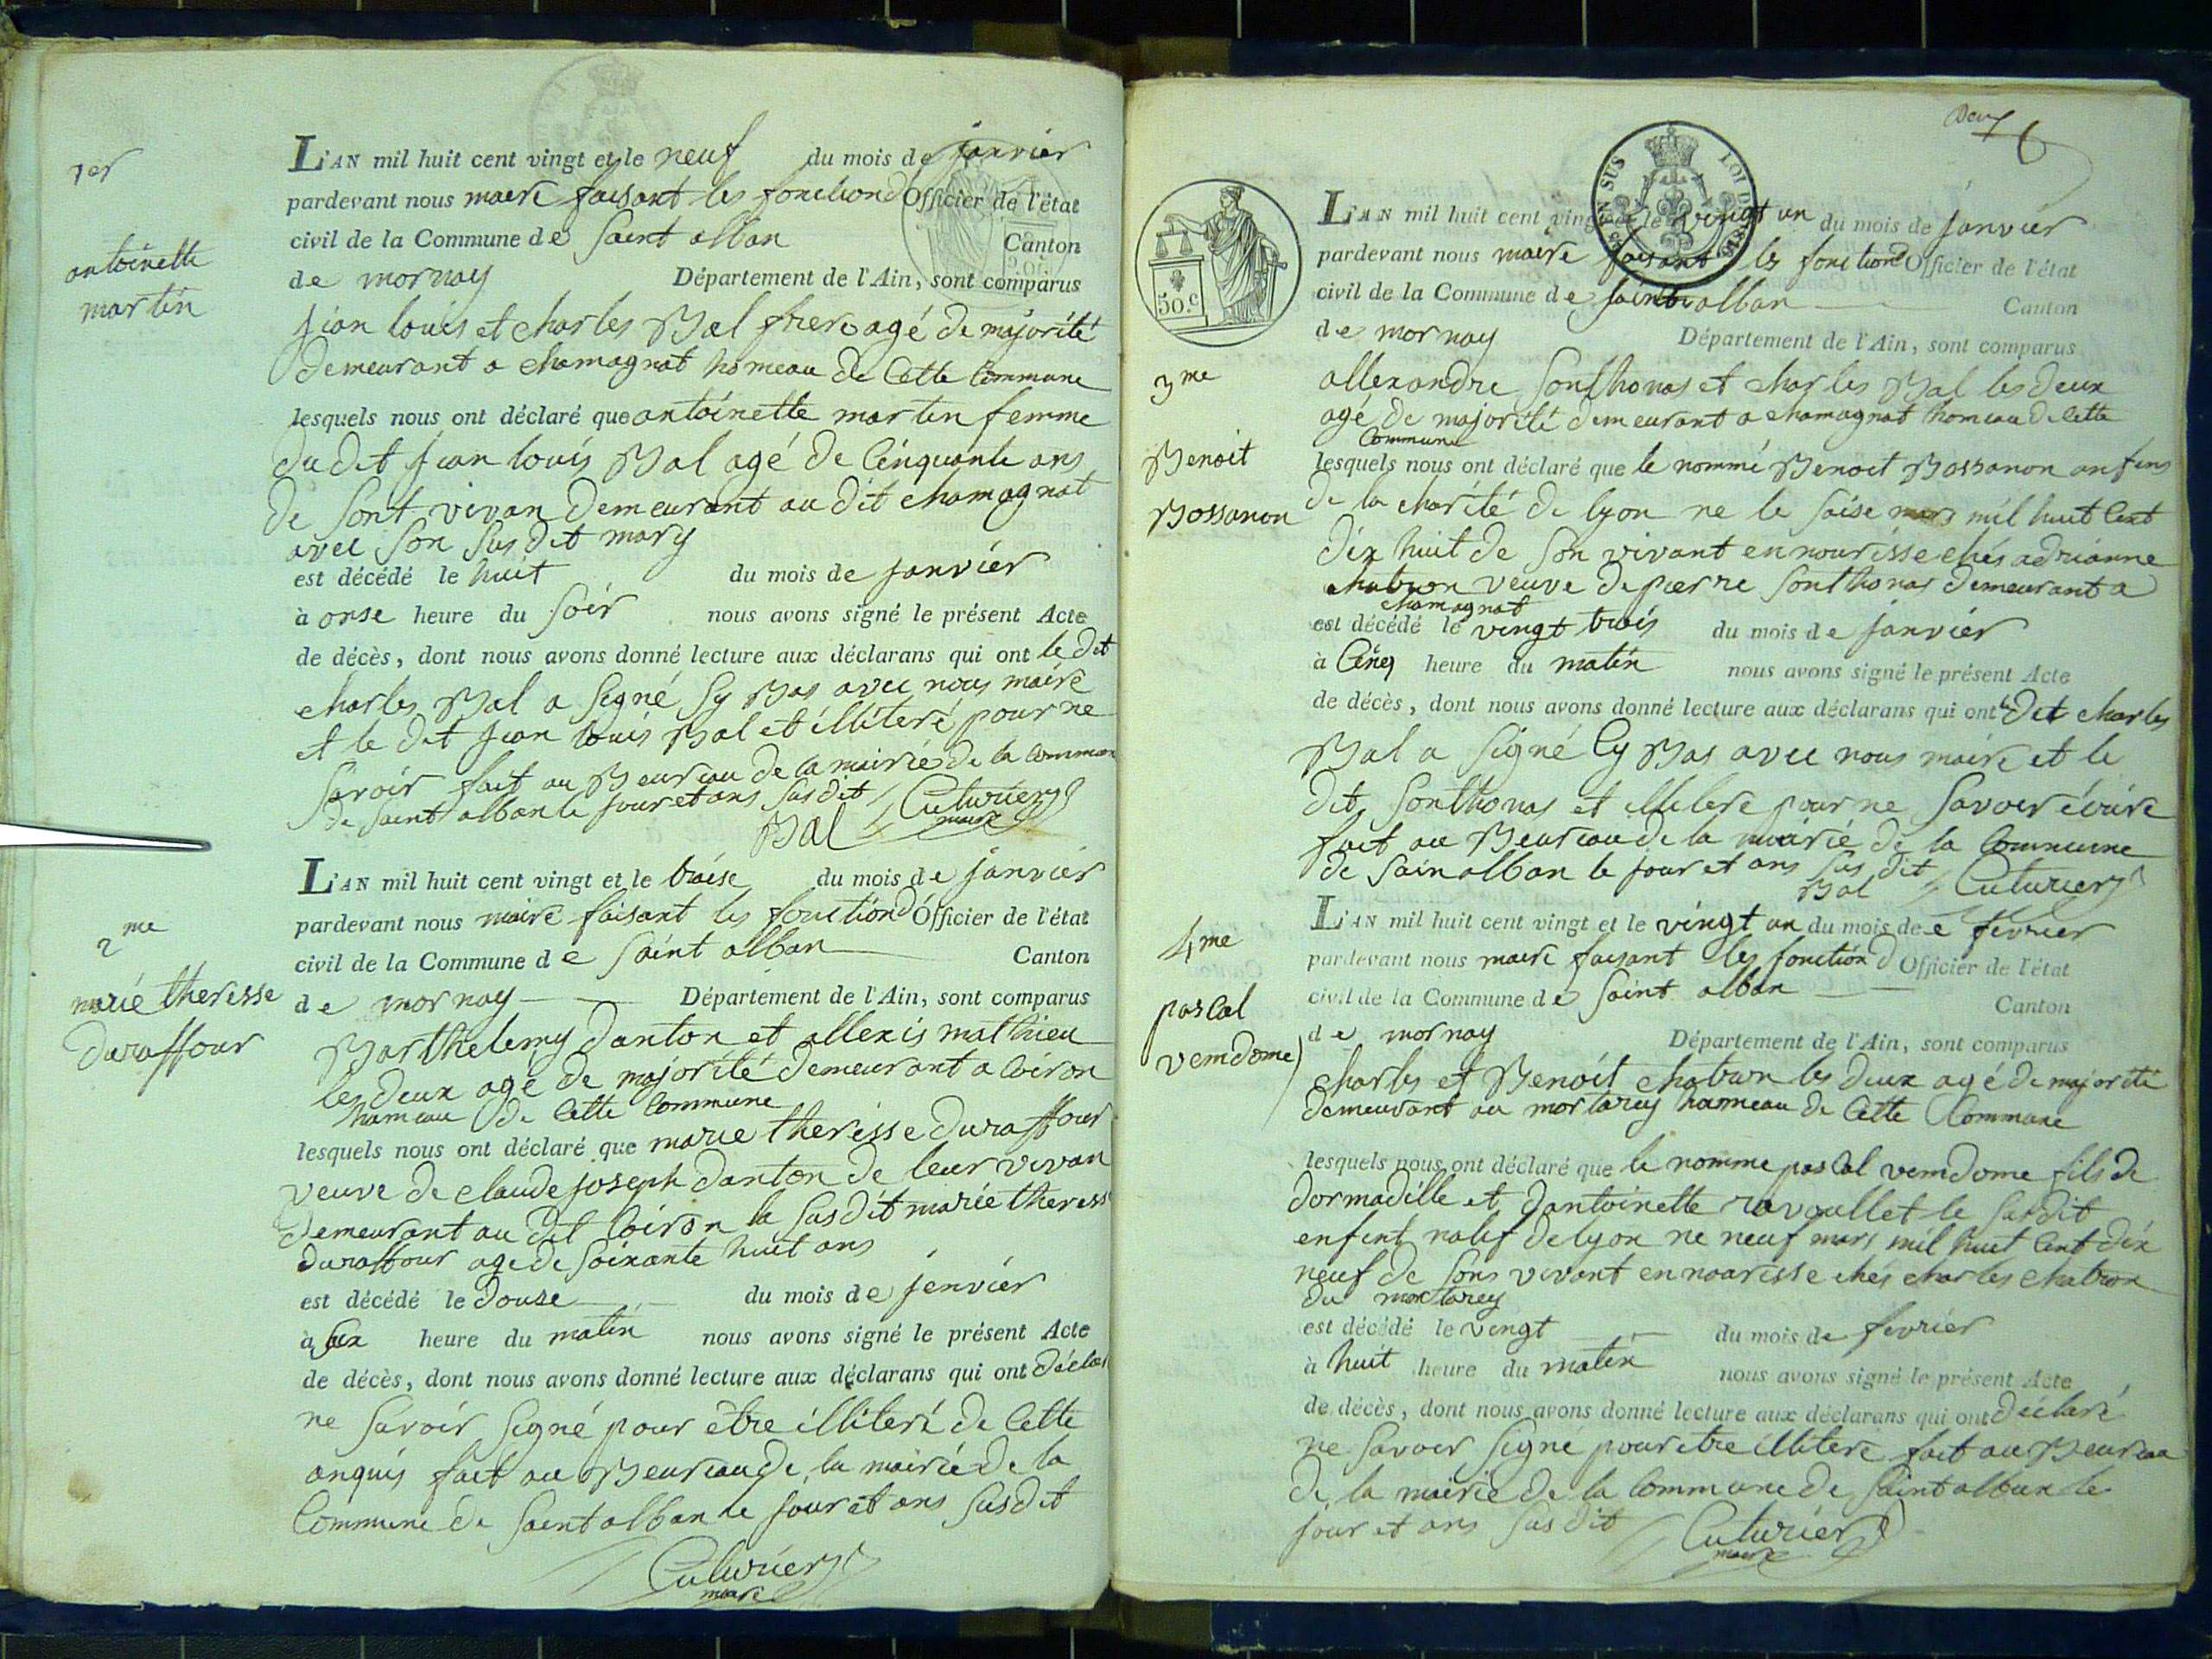 1er
antoinette
martin
L'AN mil huit cent vingt et le neuf du mois de janvier
pardevant nous maire faisant les fonction d'Officier de l'état
civil de la Commune de Saint alban Canton
de mornay Département de l'Ain, sont comparus
jean louis et charles Bal frere agé de majorité
demeurant a chamagnat hameau de Cette Commune
lesquels nous ont déclaré que antoinette martin femme
du dit jean louis Bal agé de Cinquante ans
de sont vivan demeurant au dit chamagnat
avec son susdit mary
est décédé le huit du mois de janvier
à onse heure du soir nous avons signé le présent Acte
de décès, dont nous avons donné lecture aux déclarans qui ont le dit
charles Bal a signé Sy Bas avec nous maire
et le dit jean louis Bal et illiteré pour ne
savoir fait au Beureau de la mairie de la commune
de Saint alban le jour et ans susdit
Bal Cuturier
maire
2me
marie theresse
duraffour
L'AN mil huit cent vingt et le traise du mois de janvier
pardevant nous maire faisant les fonction d'Officier de l'état
civil de la Commune de Saint alban Canton
de mornay Département de l'Ain, sont comparus
Barthelemy danton et allexis mathieu
les deux agé de majorité demeurant a Coiron
hameau de Cette Commune
lesquels nous ont déclaré que marie theresse duraffour
veuve de claude joseph danton de leur vivan
demeurant au dit Coiron la susdit marie theress
duraffour age de soixante huit ans
est décédé le douse du mois de jenvier
à six heure du matin nous avons signé le présent Acte
de décès, dont nous avons donné lecture aux déclarans qui ont déclar
ne savoir signé pour être illiteré de Cette
anquis fait au Beureau de la mairie de la
Commune de Saint alban le jour et ans susdit
Cuturier
maire
TIMBRE EN SUS LOI DE 1816
50.c
3me
Benoit
Bossanon
L'AN mil huit cent vingt et le vingt un du mois de janvier
pardevant nous maire faisant les fonction d'Officier de l'état
civil de la Commune de Saint alban Canton
de mornay Département de l'Ain, sont comparus
allexandre Sonthonas et charles Bal les deux
agé de majorité demeurant a chamagnat hameau de Cette
Commune
lesquels nous ont déclaré que le nommé Benoit Bossanon anfens
de la charité de lyon ne le saise mars mil huit Cent
dix huit de son vivant en nourisse chés adrianne
chatron veuve de pierre Sonthonas demeurant a
chamagnat
est décédé le vingt trois du mois de janvier
à Cinq heure du matin nous avons signé le présent Acte
de décès, dont nous avons donné lecture aux déclarans qui ont le dit charles
Bal a signé Cy Bas avec nous maire et le
dit Sonthonas et illitere pour ne savoir écrire
fait au Beureau de la mairie de la Commune
de Sain alban le jour et ans susdit
Bal Cuturier
4me
pascal
vemdome
L'AN mil huit cent vingt et le vingt un du mois de fevrier
pardevant nous maire faisant les fonction d Officier de l'état
civil de la Commune de Saint alban Canton
de mornay Département de l'Ain, sont comparus
charles et Benoit chatron les deux agé de majorité
demeurant au mortarey hameau de Cette Commune
lesquels nous ont déclaré que le nomme pascal vemdome fils de
dormadille et dantoinette ravoullet le susdit
enfent natif de lyon ne neuf mars mil huit Cent dix
neuf de sons vivant en nourisse chés charles chatron
du mortarey
est décédé le vingt du mois de fevrier
à huit heure du matin nous avons signé le présent Acte
de décès, dont nous avons donné lecture aux déclarans qui ont déclaré
ne savoir signé pour etre illitere fait au Beureau
de la mairie de la Commune de Saint alban le
jour et ans susdit Cuturier
maire